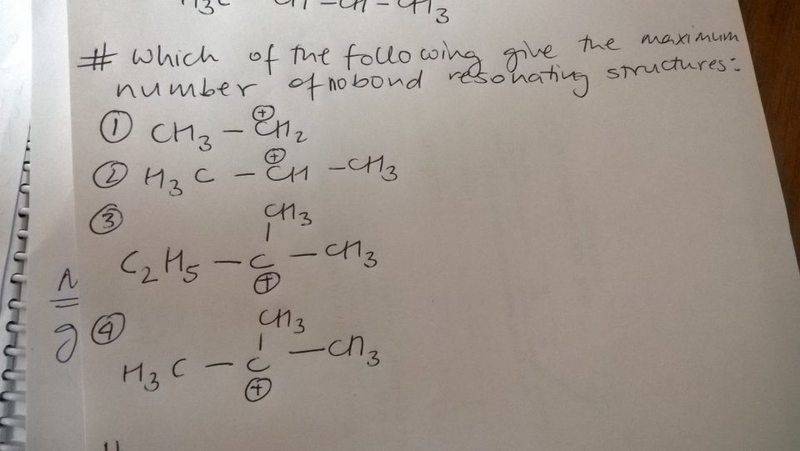 H3C CH - CH - CH3
# Which of the following give the maximum
number of nobond resonating structures:
① CH3 - CH2
⊕
② H3C - CH - CH3
⊕
③ CH3
C2H5 - C - CH3
⊕
④ CH3
H3C - C - CH3
⊕